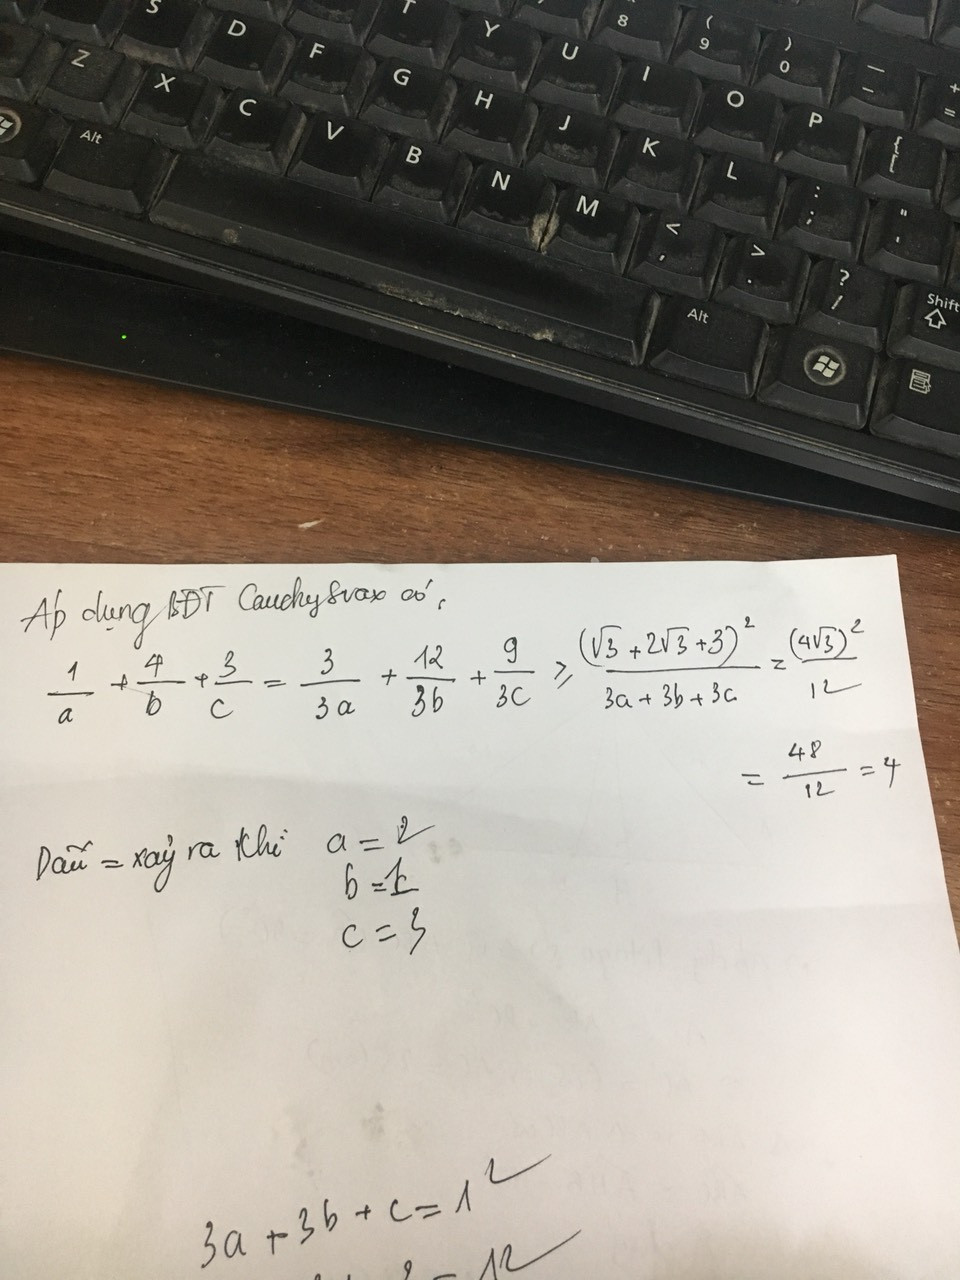 S
D
F
T
Y
U
8
( 9
) 0
— –
+ =
Z
X
C
G
H
J
I
O
P
{ [
Alt
V
B
N
M
K
L
: ;
" '
< ,
> .
? /
Alt
Shift
Áp dụng BĐT Cauchy Svax có,
1/a + 4/b + 3/c = 3/3a + 12/3b + 9/3c ≥ (√3 + 2√3 + 3)²/(3a + 3b + 3c) = (4√3)²/12
= 48/12 = 4
Dấu = xảy ra khi a = 2
b = 1
c = 3
3a + 3b + c = 12
= 12